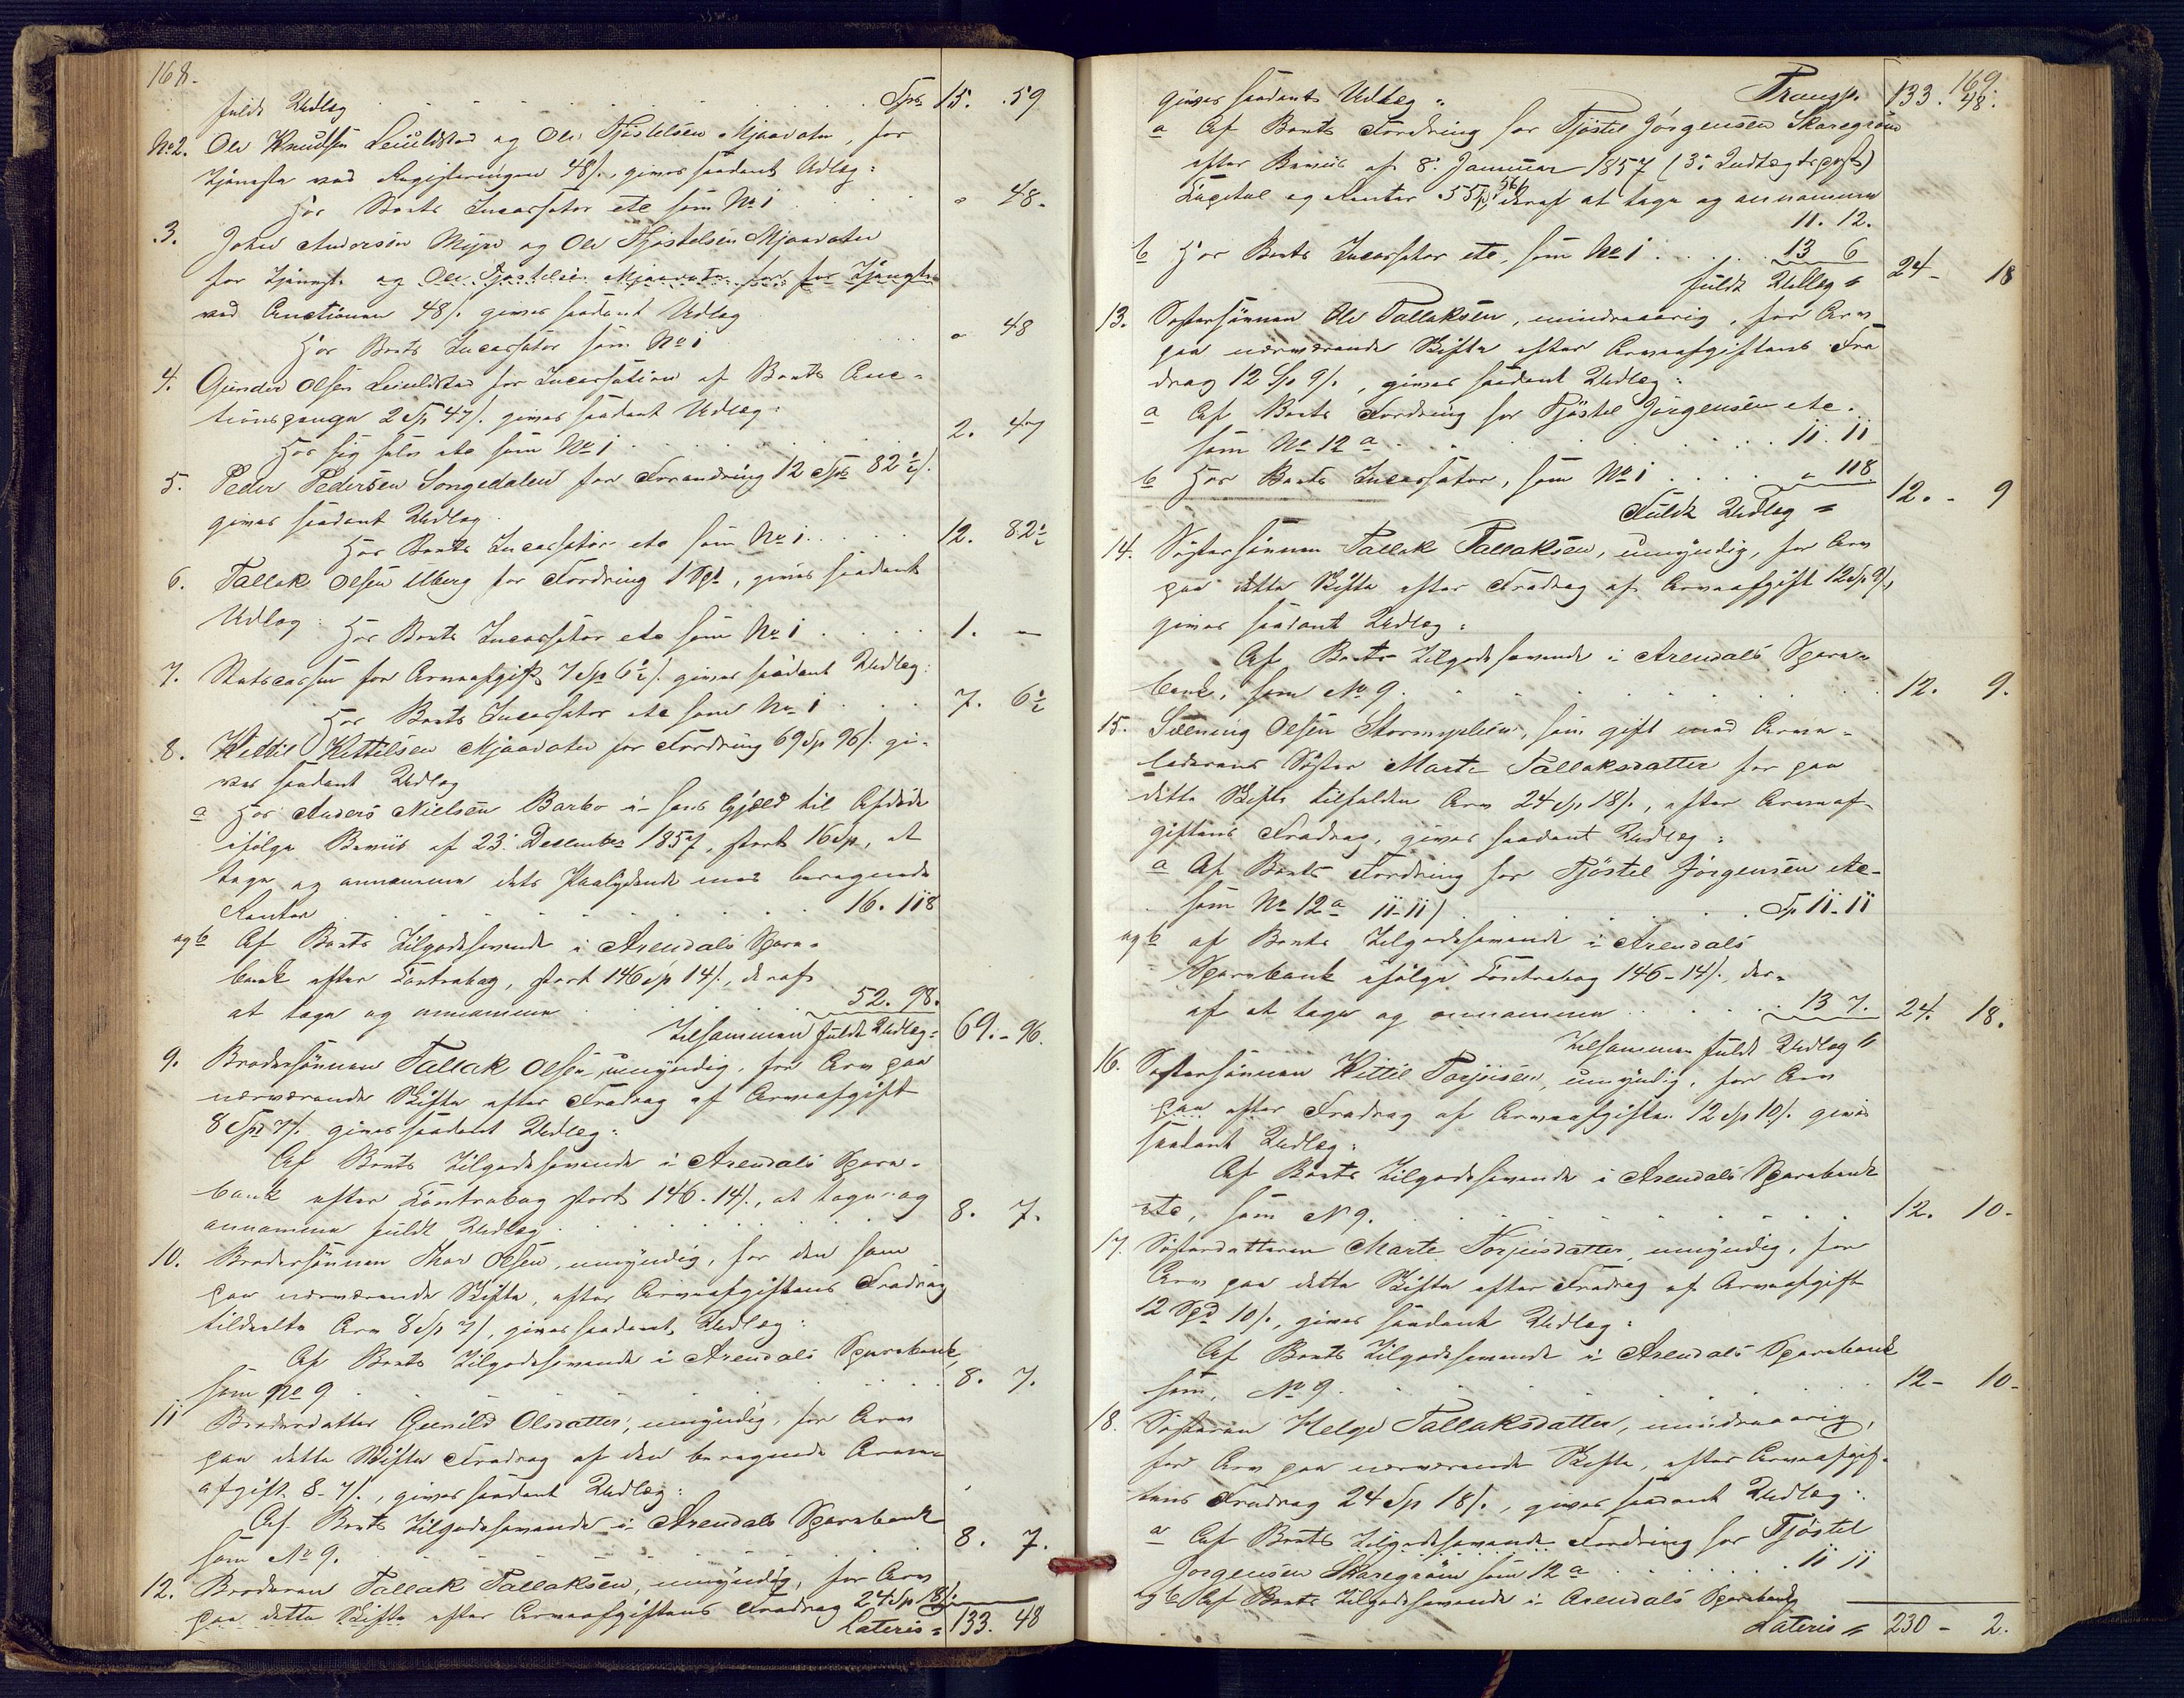 168.
fuldt Udlæg . . . . . . . . . Spd 15. 59
No 2. Ole Knudsen Leiulstad og Ole Tjøstelsen Mjaavatn, for
Tjeneste ved Registeringen 48 s. gives saadant Udlæg:
Hos Boets Incassator etc som No 1 . . . . " 48.
3. John Andersen Myre og Ole Tjøstelsen Mjaavatn
for Tjenest. og Ole Tjøstelsen Mjaavatn for for Tjeneste
ved Auctionen 48 s. gives saadant Udlæg
Hos Boets Incassator som No 1 . . . " 48
4. Gunder Olsen Leiulstad for Incassation af Boets Auc-
tionspenge 2 Sp 47 s. gives saadant Udlæg:
Hos sig selv etc som No 1 . . . . . 2. 47
5. Peder Pedersen Songedalen for Fordring 12 Spd 82½ s.
gives saadant Udlæg
Hos Boets Incassator etc som No 1 . . . . 12. 82½
6. Tallak Olsen Uberg for Fordring 1 Spd, gives saadant
Udlæg: Hos Boets Incassator etc som No 1 . . . . 1. —
7. Statscassen for Arveafgift 7 Sp 6½ s. gives saadant Udlæg:
Hos Boets Incassator etc som No 1 . . . 7. 6½
8. Kittil Kittilsen Mjaavatn for Fordring 69 Sp 96 s. gi-
ves saadant Udlæg
a Hos Anders Nielsen Barbo i hans Gjæld til Afdøde
ifølge Beviis af 23. December 1857, stort 16 Sp, at
tage og annamme dets Paalydende med beregnede
Renter . . . . . . . . . 16. 118
og b Af Boets Tilgodehavende i Arendals Spare-
bank efter Contrabog, stort 146 Sp 14 s., deraf
at tage og annamme . . . . . 52. 98.
Tilsammen fuldt Udlæg = 69. - 96.
9. Brodersønnen Tallak Olsen, umyndig, for Arv paa
nærværende Skifte efter Fradrag af Arveafgift
8 Spd 7 s. gives saadant Udlæg:
Af Boets Tilgodehavende i Arendals Spare-
bank efter Contrabog stort 146-14 s., at tage og
annamme fuldt Udlæg . . . . . . . 8. 7.
10. Brodersønnen Thor Olsen, umyndig, for den ham
paa nærværende Skifte, efter Arveafgiftens Fradrag
tildeelte Arv 8 Sp 7 s, gives saadant Udlæg:
Af Boets Tilgodehavende i Arendals Sparebank,
som No 9 . . . . . . . . 8. 7.
11 Broderdatter Gunild Olsdatter, umyndig, for Arv
paa dette Skifte Fradrag af den beregnede Arve-
afgift 8-7 s., gives saadant Udlæg:
Af Boets Tilgodehavende i Arendals Sparebank
som No 9. . . . . . . . . 8. 7.
12. Broderen Tallak Tallaksen, umyndig, for Arv
paa dette Skifte efter Arveafgiftens Fradrag 24 Sp 18 s.
Lateris = 133. 48
169
gives saadant Udlæg: Transp. 133. 48.
a Af Boets Fordring hos Tjøstel Jørgensen Skaregrøm
efter Beviis af 8. Januar 1857 (3. Indtægtspost)
Capital og Renter 55 Sp 56 s, deraf at tage og annamme
11. 12.
b Hos Boets Incassator etc, som No 1 . . . . . 13 6
fuldt Udlæg = 24 - 18
13. Søstersønnen Ole Tallaksen, mindreaarig, for Arv
paa nærværende Skifte efter Arveafgiftens Fra
drag 12 Sp 9 s., gives saadant Udlæg:
a Af Boets Fordring hos Tjøstel Jørgensen etc.
som No 12 a . . . . . . . . . 11. 11
b Hos Boets Incassator, som No 1 . . . . " 118.
Fuldt Udlæg = 12. - 9
14. Søstersønnen Tallak Tallaksen, umyndig, for Arv
paa dette Skifte efter Fradrag af Arveafgift 12 Sp 9 s,
gives saadant Udlæg:
Af Boets Tilgodehavende i Arendals Spare-
bank, som No 9. . . . . . . . . 12. 9.
15. Sælening Olsen Stormyrlien, som gift med Arve-
laderens Søster Marte Tallaksdatter for paa
dette Skifte tilfalden Arv 24 Sp 18 s., efter Arveaf-
giftens Fradrag, gives saadant Udlæg:
a Af Boets Fordring hos Tjøstel Jørgensen etc-
som No 12 a 11-11) . . . . . . Sp 11-11
og b af Boets Tilgodehavende i Arendals
Sparebank ifølge Contrabog 146-14 s., der-
af at tage og annamme . . . . . 13 7. 24. 18.
Tilsammen fuldt Udlæg "
16. Søstersønnen Kittil Torjusen, umyndig, for Arv
paa efter Fradrag af Arveafgiften 12 Sp 10 s. gives
saadant Udlæg:
Af Boets Tilgodehavende i Arendals Sparebank
etc, som No 9. . . . . . . . . 12. 10-
17. Søsterdatteren Marte Torjusdatter, umyndig, for
Arv paa dette Skifte efter Fradrag af Arveafgift
12 Spd 10 s., gives saadant Udlæg:
Af Boets Tilgodehavende i Arendals Sparebank
som, No 9. . . . . . . . . . 12- 10-
18. Søsteren Helge Tallaksdatter, mindreaarig,
for Arv paa nærværende Skifte, efter Arveafgif-
tens Fradrag 24 Sp 18 s., gives saadant Udlæg:
a Af Boets Tilgodehavende Fordring hos Tjøstel
Jørgensen Skaregrøm som 12 a . . . . . 11 11
og b Af Boets Tilgodehavende i Arendals Sparebank
Lateris = 230 - 2.